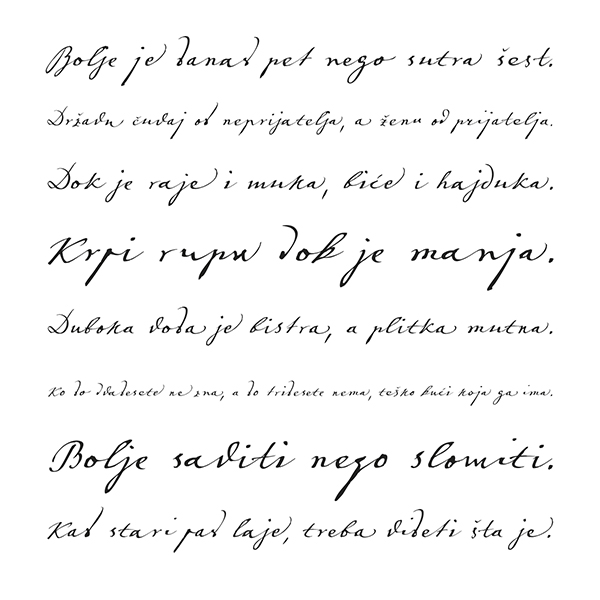 Bolje je danas pet nego sutra šest.
Državu čuvaj od neprijatelja, a ženu od prijatelja.
Dok je raje i muka, biće i hajduka.
Krpi rupu dok je manja.
Duboka voda je bistra, a plitka mutna.
Ko do dvadesete ne zna, a do tridesete nema, teško kući koja ga ima.
Bolje saviti nego slomiti.
Kad stari pas laje, treba videti šta je.